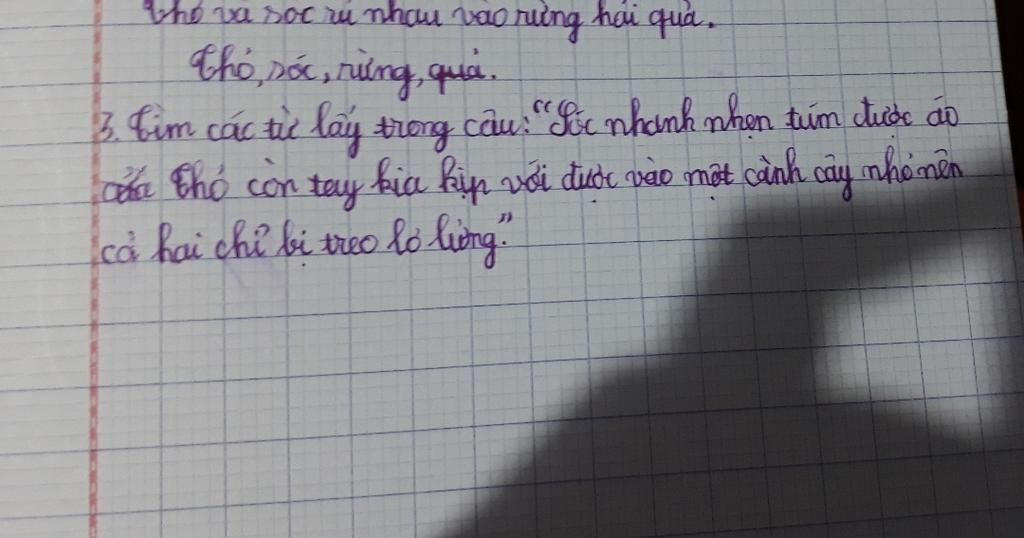 Thỏ và sóc rủ nhau vào rừng hái quả.
Thỏ, sóc, rừng, quả.
3. Tìm các từ láy trong câu: "Sóc nhanh nhẹn túm được áo
của Thỏ còn tay kia kịp với được vào một cành cây nhỏ nên
cả hai chỉ bị treo lơ lửng."